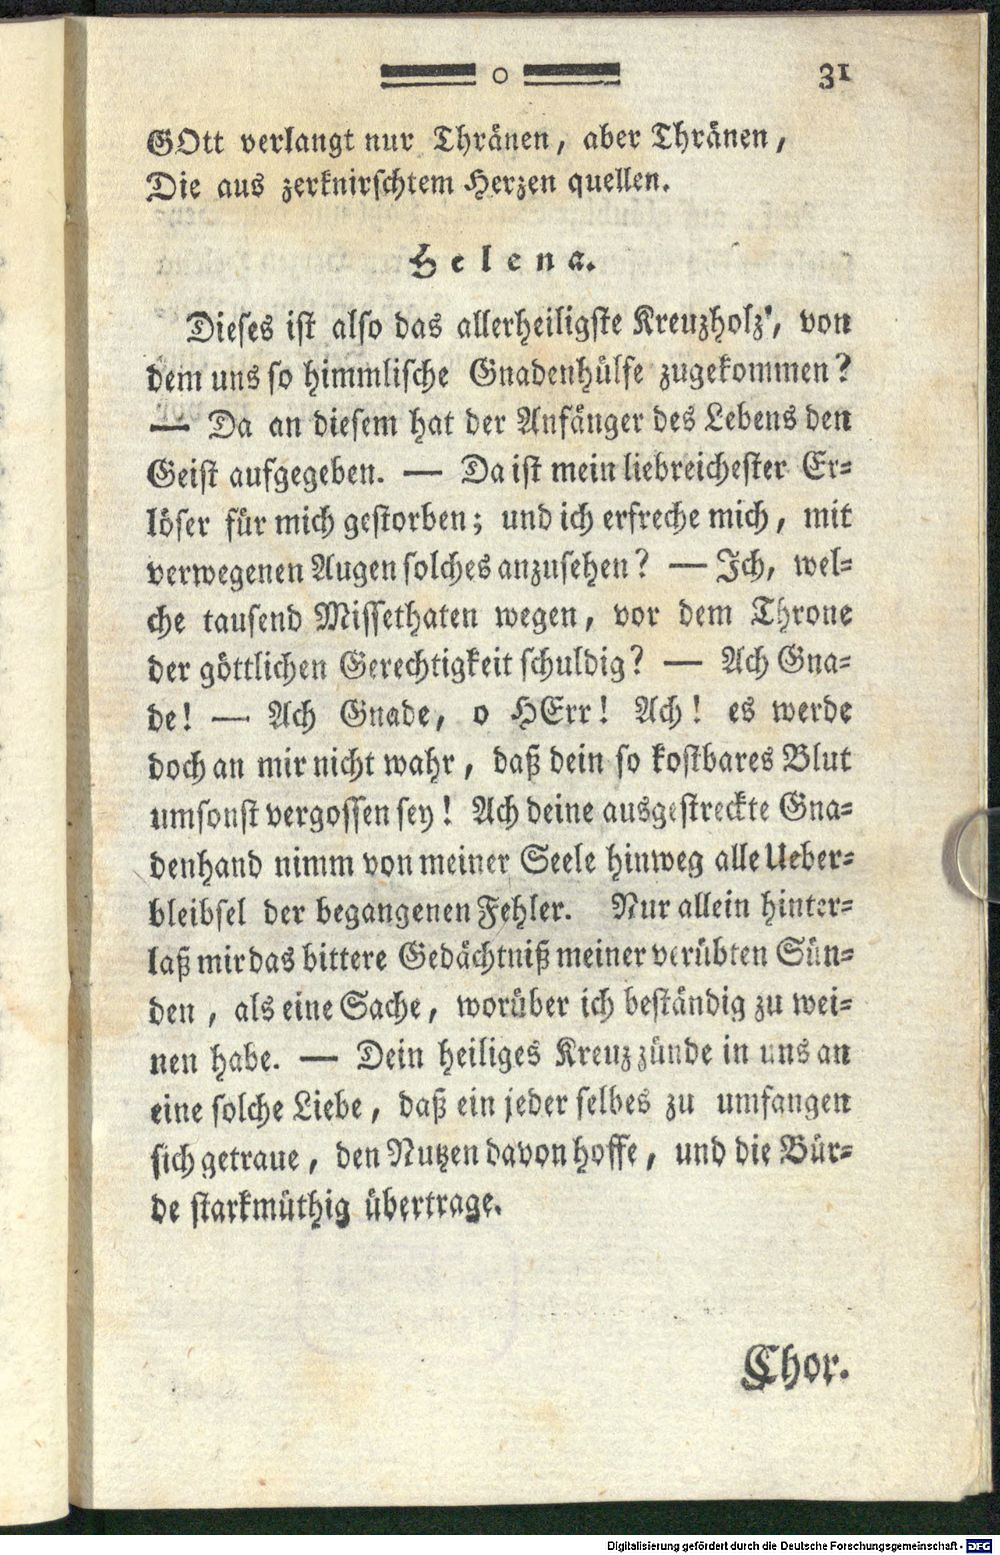 o 31
GOtt verlangt nur Thränen, aber Thränen,
Die aus zerknirschtem Herzen quellen.
Helena.
Dieses ist also das allerheiligste Kreuzholz, von
dem uns so himmlische Gnadenhülfe zugekommen?
— Da an diesem hat der Anfänger des Lebens den
Geist aufgegeben. — Da ist mein liebreichester Er-
löser für mich gestorben; und ich erfreche mich, mit
verwegenen Augen solches anzusehen? — Ich, wel-
che tausend Missethaten wegen, vor dem Throne
der göttlichen Gerechtigkeit schuldig? — Ach Gna-
de! — Ach Gnade, o HErr! Ach! es werde
doch an mir nicht wahr, daß dein so kostbares Blut
umsonst vergossen sey! Ach deine ausgestreckte Gna-
denhand nimm von meiner Seele hinweg alle Ueber-
bleibsel der begangenen Fehler. Nur allein hinter-
laß mir das bittere Gedächtniß meiner verübten Sün-
den, als eine Sache, worüber ich beständig zu wei-
nen habe. — Dein heiliges Kreuz zünde in uns an
eine solche Liebe, daß ein jeder selbes zu umfangen
sich getraue, den Nutzen davon hoffe, und die Bür-
de starkmüthig übertrage.
Chor.
Digitalisierung gefördert durch die Deutsche Forschungsgemeinschaft - DFG